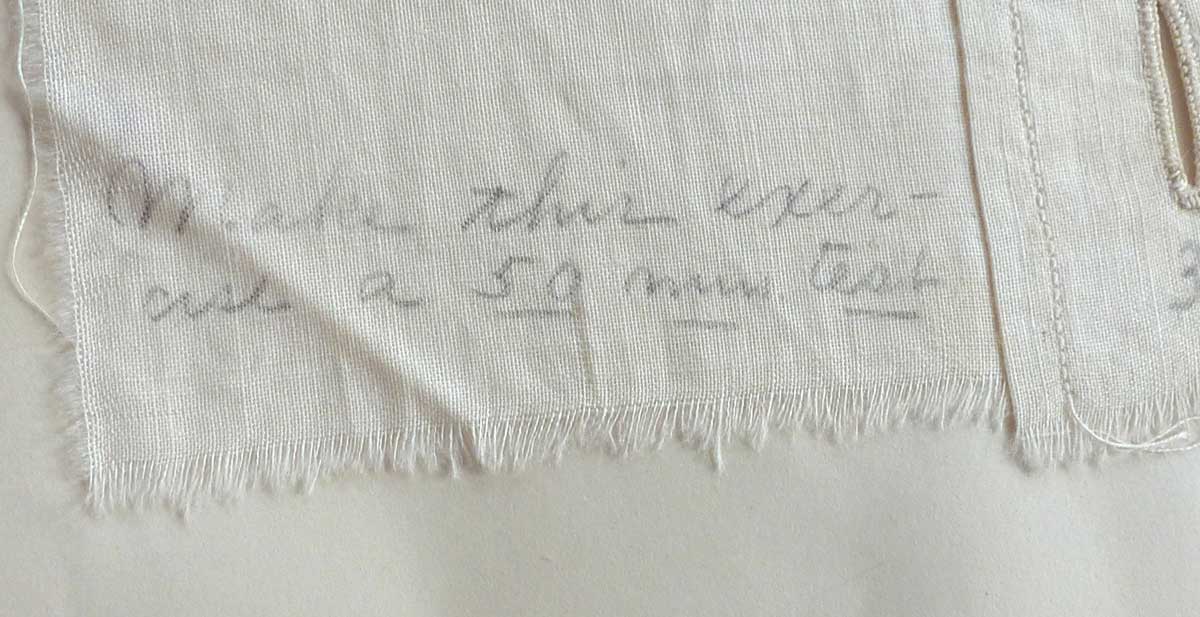 Make this exer-
cise a 50 min test
3